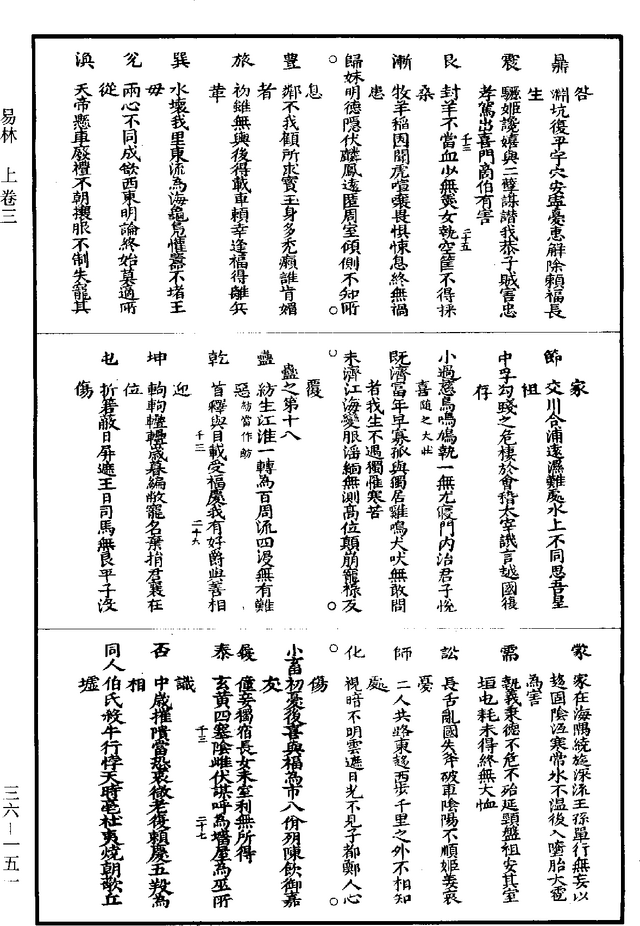 易林 上卷三
三六—一五一
鼎 淵坑復平宇穴安寧憂患解除賴福長
生
震 驪姬讒嬉與二嬖謀譖我恭子賊害忠
孝駕出喜門商伯有害
艮 封羊不當血少無羹女執空筐不得採
桑
漸 牧羊稻園聞虎喧嘷畏懼悚息終無禍
患
歸妹 明德隱伏麟鳳遠匿周室傾側不知所
息
豐 鄰不我顧而求玉身多禿癩誰肯媚
者
旅 初雖無輿後得載車賴幸逢福得離兵
革
巽 水壞我里東流為海龜鳧懽囂不堵王
母
兌 兩心不同或欲西東明論終始莫適所
從
渙 天帝懸車廢禮不朝攘服不制失寵其
家
節 交川合浦遠濕難處水上不同思吾皇
祖
中孚 勾踐之危棲於會稽太宰譏言越國復
存
小過 慈烏鳴鳩執一無尤寢門內治君子悅
喜 隨之大壯
既濟 富年早寡孤與獨居雞鳴犬吠無敢問
者我生不遇獨懼寒苦
未濟 江海變服淫緬無測高位顛崩寵祿反
覆
蠱之第十八
蠱 紡生江淮一轉為百周流四浸無有難
惡 紡當作魴
乾 首釋與目載受福慶我有好爵與善相
迎
坤 輷輷轣轣歲暮編敝寵名棄捐君衰在
位
屯 折箬蔽日屏遮王日司馬無良平子沒
傷
蒙 家在海隅繞旋深流王孫單行無妄以
趍固陰沍寒常氷不溫後入墮胎大雹
為害
需 執義秉德不危不殆延頸盤桓安其室
垣屯耗未得終無大恤
訟 長舌亂國失斧破車陰陽不順姬姜哀
憂
師 二人共路東趍西步千里之外不相知
處
化 視暗不明雲遮日光不見子都鄭人心
傷
小畜 初憂後喜與福為市八佾列陳飲御嘉
友
履 僮妾獨宿長女未室利無所得
泰 玄黃四塞陰雌伏謀呼為墻屋為巫所
識
否 中歲摧隤當恐衰微老復賴慶五羖為
相
同人 伯氏牧牛行悖天時亳社夷燒朝歌丘
墟